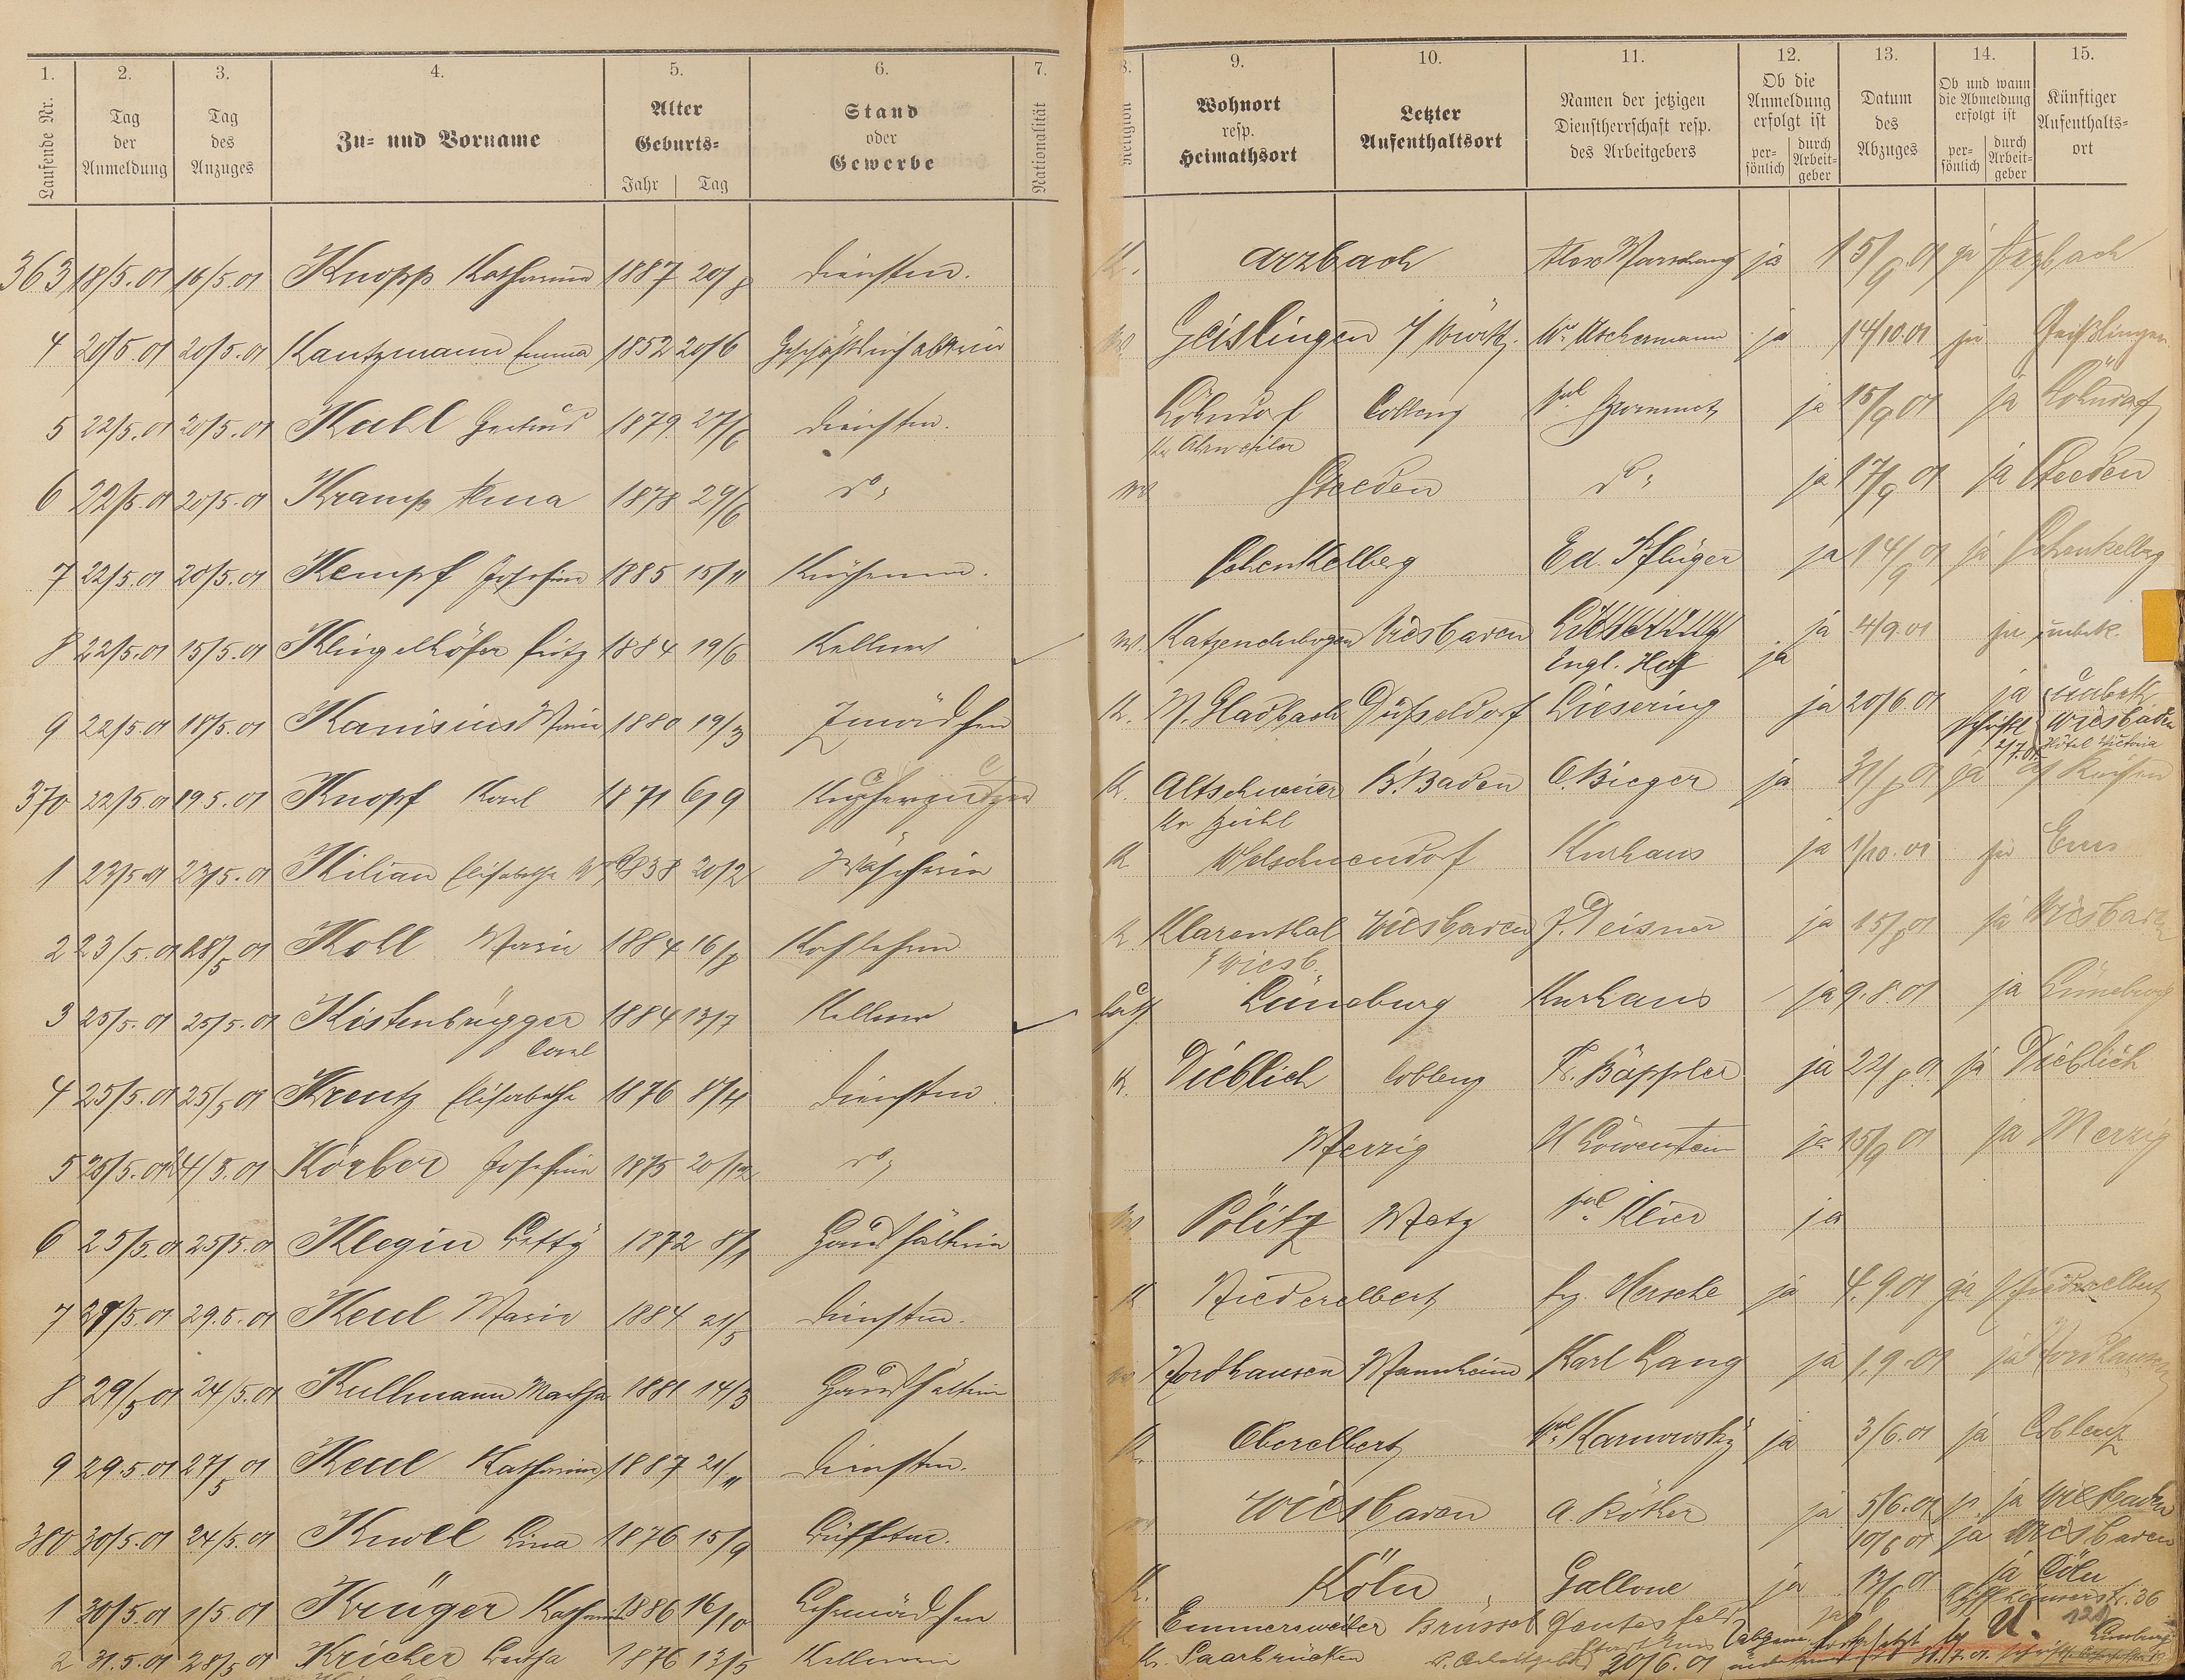 1. 2. 3. 4. 5. 6. 7. 8. 9. 10. 11. 12. 13. 14. 15.
Laufende Nr. Tag der Anmeldung Tag des Anzuges Zu- und Vorname Alter Geburts- Jahr Tag Stand oder Gewerbe Nationalität Religion Wohnort resp. Heimathsort Letzter Aufenthaltsort Namen der jetzigen Dienstherrschaft resp. des Arbeitgebers Ob die Anmeldung erfolgt ist per- sönlich durch Arbeit- geber Datum des Abzuges Ob und wann die Abmeldung erfolgt ist per- sönlich durch Arbeit- geber Künftiger Aufenthalts- ort
363 18/5.01 16/5.01 Knopp Katharina 1887 20/8 Dienstm. K. Arzbach ja 15/9 01 ja Arzbach
4 20/5.01 20/5.01 Kautzmann Emma 1852 20/6 Geislingen i/ Württ. We Aschermann ja 14/10.01 ja Geißlingen
5 22/5.01 20/5.01 Kahl Gertrud 1879 27/6 Dienstm. Löhndorf Coblenz ja 15/9 01 ja Löhndorf
Kr Ahrweiler
6 22/5.01 20/5.01 Kramp Anna 1878 29/6 do. Steeden do. ja 17/9 01 ja Steeden
7 22/5.01 20/5.01 Kempf Josephine 1885 15/11 Küchenm. Ed. Pflüger ja 14/9 01 ja
8 22/5.01 15/5.01 Klingelhöfer Fritz 1884 19/6 Kellner Katzenelnbogen Wiesbaden Liesering ja 4/9.01 ja unbek.
Engl. Hof ja
9 22/5.01 18/5.01 Kanisius Maria 1880 19/3 Zmädchen K. M. Gladbach Düsseldorf Liesering ja 20/6.01 ja unbek
Wiesbaden
Hôtel Victoria
370 22/5.01 19.5.01 Knopf Karl 1871 6/9 Kupferputzer K. Altschweier B. Baden C. Bieger ja 31/8 01 ja auf Reisen
Kr Bühl
1 23/5.01 23/5.01 Kilian Elisabethe We 1838 20/2 Wäscherin K Welschneudorf Kurhaus ja 1/10.01 ja Ems
2 23/5.01 28/5 01 Koll Maria 1884 16/8 Kochlehrn K Klarenthal Wiesbaden J. Deisner ja 15/8 01 ja Wiesbaden
b/ Wiesb.
3 25/5.01 25/5.01 Kistenbrügger 1884 13/7 Kellner luth. Lüneburg Kurhaus ja 9.8.01 ja Lüneburg
Carl
4 25/5.01 25/5 01 Kreutz Elisabethe 1876 8/4 Dienstm. K. Dieblich Coblenz Fr. Bäppler ja 22/8 01 ja Dieblich
5 25/5.01 24/5.01 Körber Josephine 1875 20/12 do. Merzig H Löwenstein ja 15/9 01 ja Merzig
6 25/5.01 25/5.01 Klegin Betty 1872 Haushälterin Pölitz Metz Frl. Meier ja
7 29/5.01 29.5.01 Keul Maria 1884 21/5 Dienstm. K Niederelbert ja 4.9.01 ja Niederelbert
8 29/5 01 24/5.01 Kullmann Martha 1881 14/3 Haushälterin Nordhausen Mannheim Karl Lang ja 1.9.01 ja Nordhausen
9 29.5.01 27/5 01 Keul Katharina 1887 21/11 Dienstm. K. Oberelbert Frl. Karnowsky ja 3/6.01 ja Coblenz
380 30/5.01 24/5.01 Lina 1876 15/9 Büffetm. Wiesbaden A. Röther ja 5/6.01 ja Wiesbaden
10/6 01 ja Wiesbaden
1 30/5.01 1/5.01 Krüger Katharina 1886 16/10 Lehrmädchen K. Köln Gallone ja 13/6 01 ja Cöln
2 31.5.01 28/5 01 Kricher Bertha 1876 13/5 Kellnerin K. Emmersweiler Brüssel
Kr. Saarbrücken 20/6.01